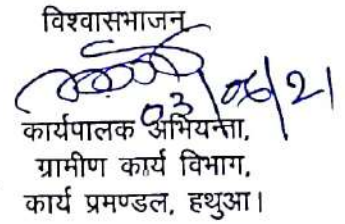 विश्वासभाजन
03/06/21
कार्यपालक अभियन्ता,
ग्रामीण कार्य विभाग,
कार्य प्रमण्डल, हथुआ।